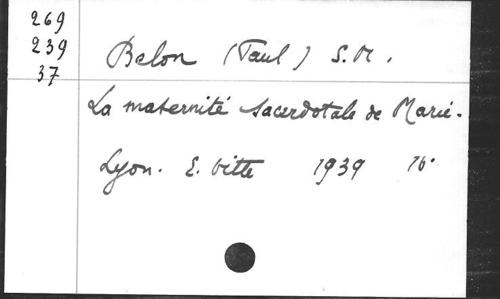 269
239
37
Belon (Paul) S.M.
La maternité sacerdotale de Marie.
Lyon. E. Vitte 1939 16°